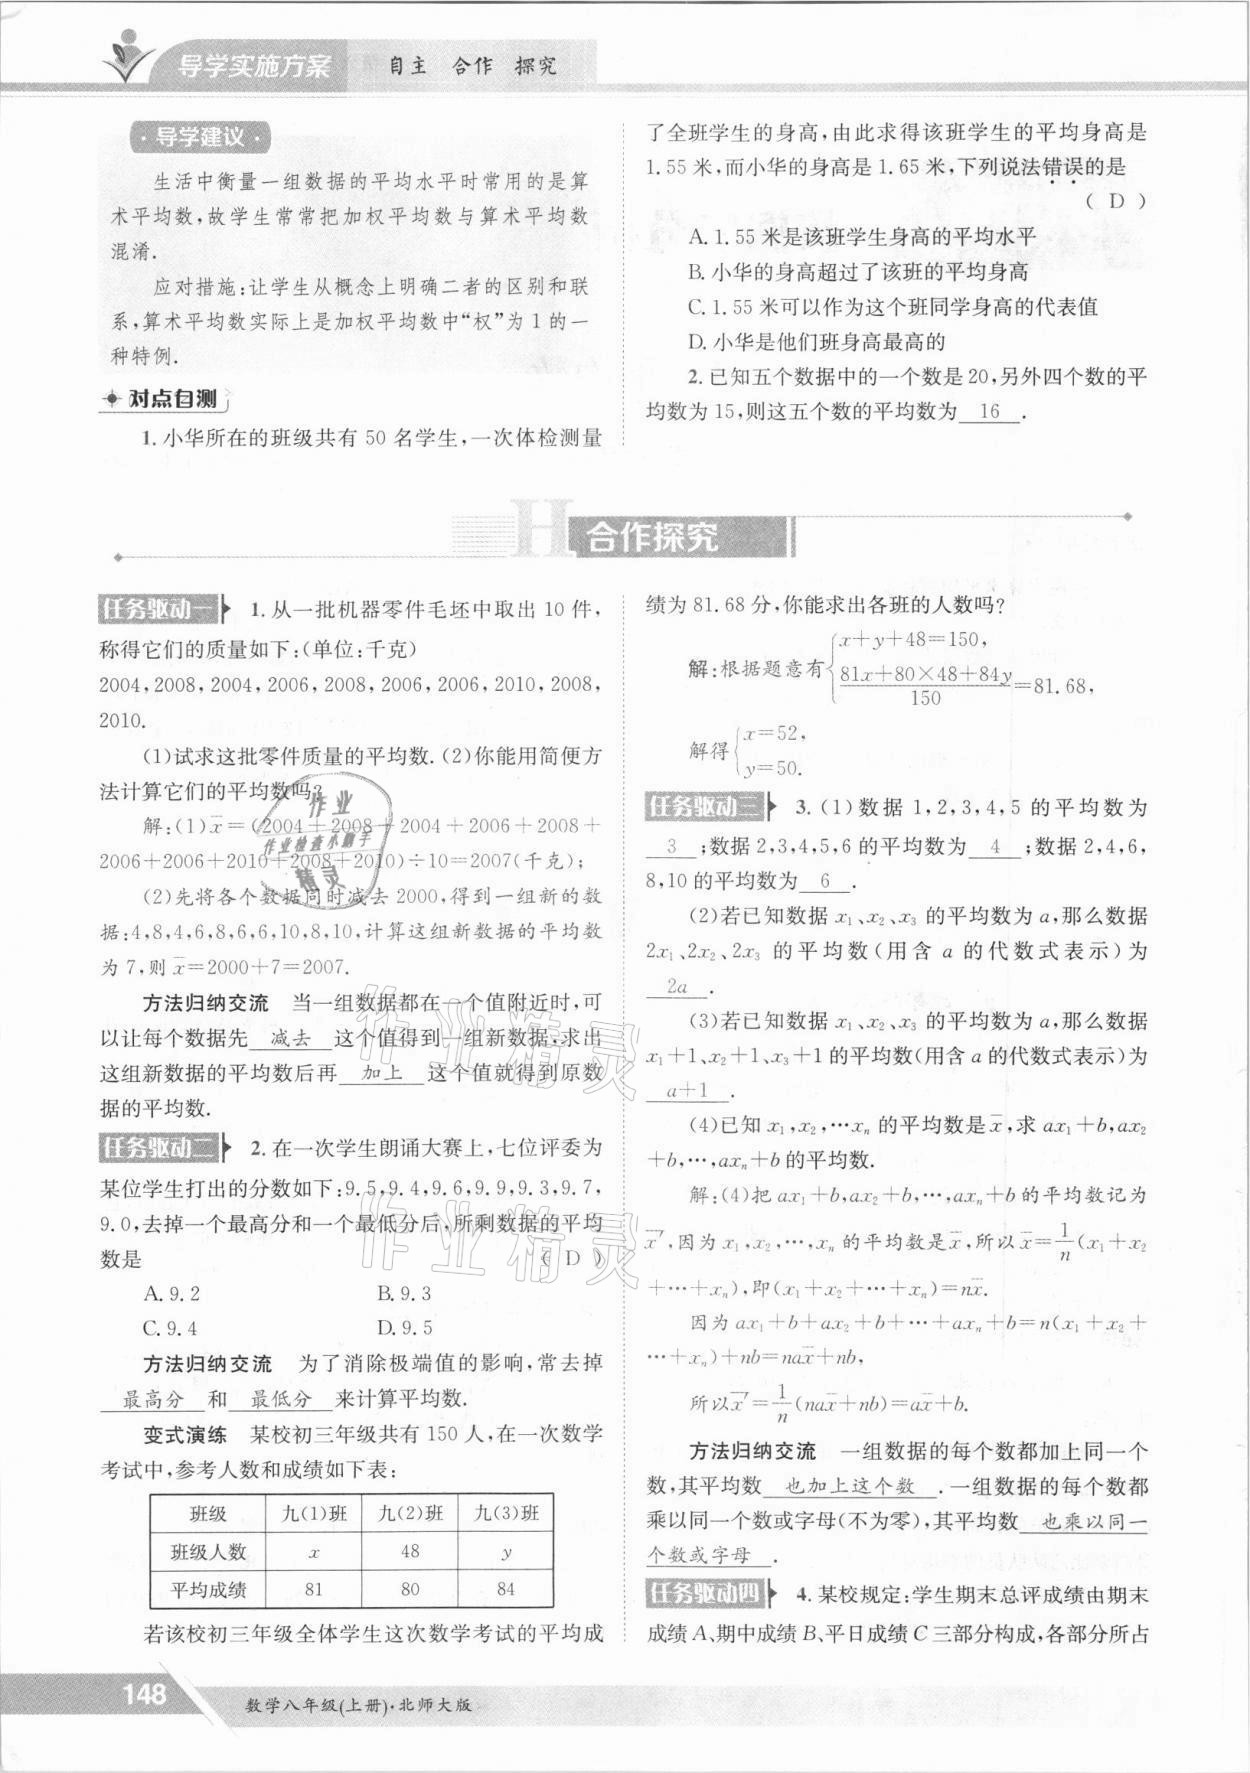 导学实施方案 自主 合作 探究
·导学建议·
生活中衡量一组数据的平均水平时常用的是算
术平均数,故学生常常把加权平均数与算术平均数
混淆.
应对措施:让学生从概念上明确二者的区别和联
系,算术平均数实际上是加权平均数中“权”为1的一
种特例.
对点自测
1.小华所在的班级共有50名学生,一次体检测量
了全班学生的身高,由此求得该班学生的平均身高是
1.55米,而小华的身高是1.65米,下列说法错误的是
( D )
A.1.55米是该班学生身高的平均水平
B.小华的身高超过了该班的平均身高
C.1.55米可以作为这个班同学身高的代表值
D.小华是他们班身高最高的
2.已知五个数据中的一个数是20,另外四个数的平
均数为15,则这五个数的平均数为 16 .
H 合作探究
任务驱动一 1.从一批机器零件毛坯中取出10件,
称得它们的质量如下:(单位:千克)
2004,2008,2004,2006,2008,2006,2006,2010,2008,
2010.
(1)试求这批零件质量的平均数.(2)你能用简便方
法计算它们的平均数吗?
解:(1)x̄=(2004+2008+2004+2006+2008+
2006+2006+2010+2008+2010)÷10=2007(千克);
(2)先将各个数据同时减去2000,得到一组新的数
据:4,8,4,6,8,6,6,10,8,10,计算这组新数据的平均数
为7,则x̄=2000+7=2007.
方法归纳交流 当一组数据都在一个值附近时,可
以让每个数据先 减去 这个值得到一组新数据,求出
这组新数据的平均数后再 加上 这个值就得到原数
据的平均数.
任务驱动二 2.在一次学生朗诵大赛上,七位评委为
某位学生打出的分数如下:9.5,9.4,9.6,9.9,9.3,9.7,
9.0,去掉一个最高分和一个最低分后,所剩数据的平均
数是 ( D )
A.9.2 B.9.3
C.9.4 D.9.5
方法归纳交流 为了消除极端值的影响,常去掉
最高分 和 最低分 来计算平均数.
变式演练 某校初三年级共有150人,在一次数学
考试中,参考人数和成绩如下表:
班级 九(1)班 九(2)班 九(3)班
班级人数 x 48 y
平均成绩 81 80 84
若该校初三年级全体学生这次数学考试的平均成
绩为81.68分,你能求出各班的人数吗?
解:根据题意有{x+y+48=150,
(81x+80×48+84y)/150=81.68,
解得{x=52,
y=50.
任务驱动三 3.(1)数据1,2,3,4,5的平均数为
3 ;数据2,3,4,5,6的平均数为 4 ;数据2,4,6,
8,10的平均数为 6 .
(2)若已知数据x₁、x₂、x₃的平均数为a,那么数据
2x₁、2x₂、2x₃的平均数(用含a的代数式表示)为
2a .
(3)若已知数据x₁、x₂、x₃的平均数为a,那么数据
x₁+1、x₂+1、x₃+1的平均数(用含a的代数式表示)为
a+1 .
(4)已知x₁,x₂,…xₙ的平均数是x̄,求ax₁+b,ax₂
+b,…,axₙ+b的平均数.
解:(4)把ax₁+b,ax₂+b,…,axₙ+b的平均数记为
x̄′,因为x₁,x₂,…,xₙ的平均数是x̄,所以x̄=1/n(x₁+x₂
+…+xₙ),即(x₁+x₂+…+xₙ)=nx̄.
因为ax₁+b+ax₂+b+…+axₙ+b=n(x₁+x₂+
…+xₙ)+nb=nax̄+nb,
所以x̄′=1/n(nax̄+nb)=ax̄+b.
方法归纳交流 一组数据的每个数都加上同一个
数,其平均数 也加上这个数 .一组数据的每个数都
乘以同一个数或字母(不为零),其平均数 也乘以同一
个数或字母 .
任务驱动四 4.某校规定:学生期末总评成绩由期末
成绩A、期中成绩B、平日成绩C三部分构成,各部分所占
148 数学八年级(上册)·北师大版
作业
作业检查小助手
精灵
作业精灵
作业精灵